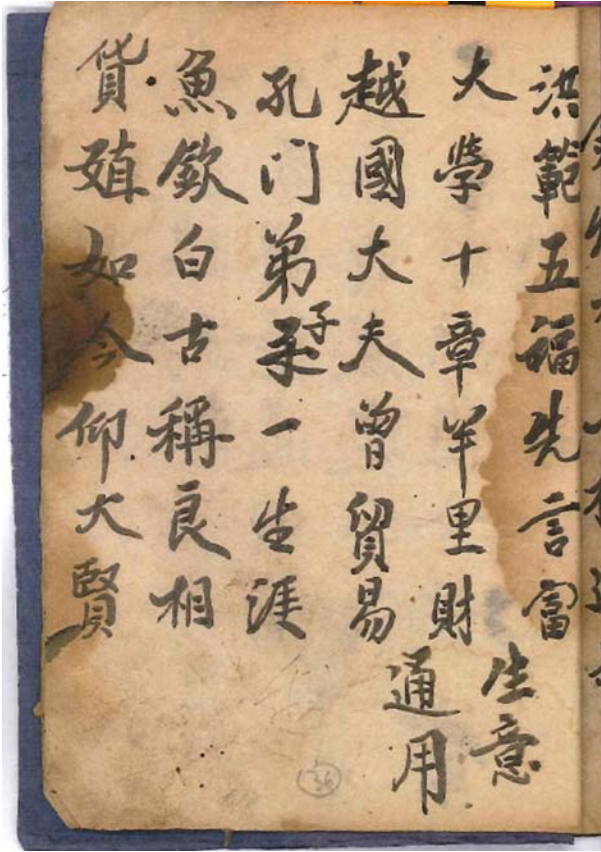 洪範五福先言富
大學十章半里財
生意
通用
越國大夫曾貿易
孔门弟子一生涯
魚欽白古稱良相
貨殖如今仰大賢
36